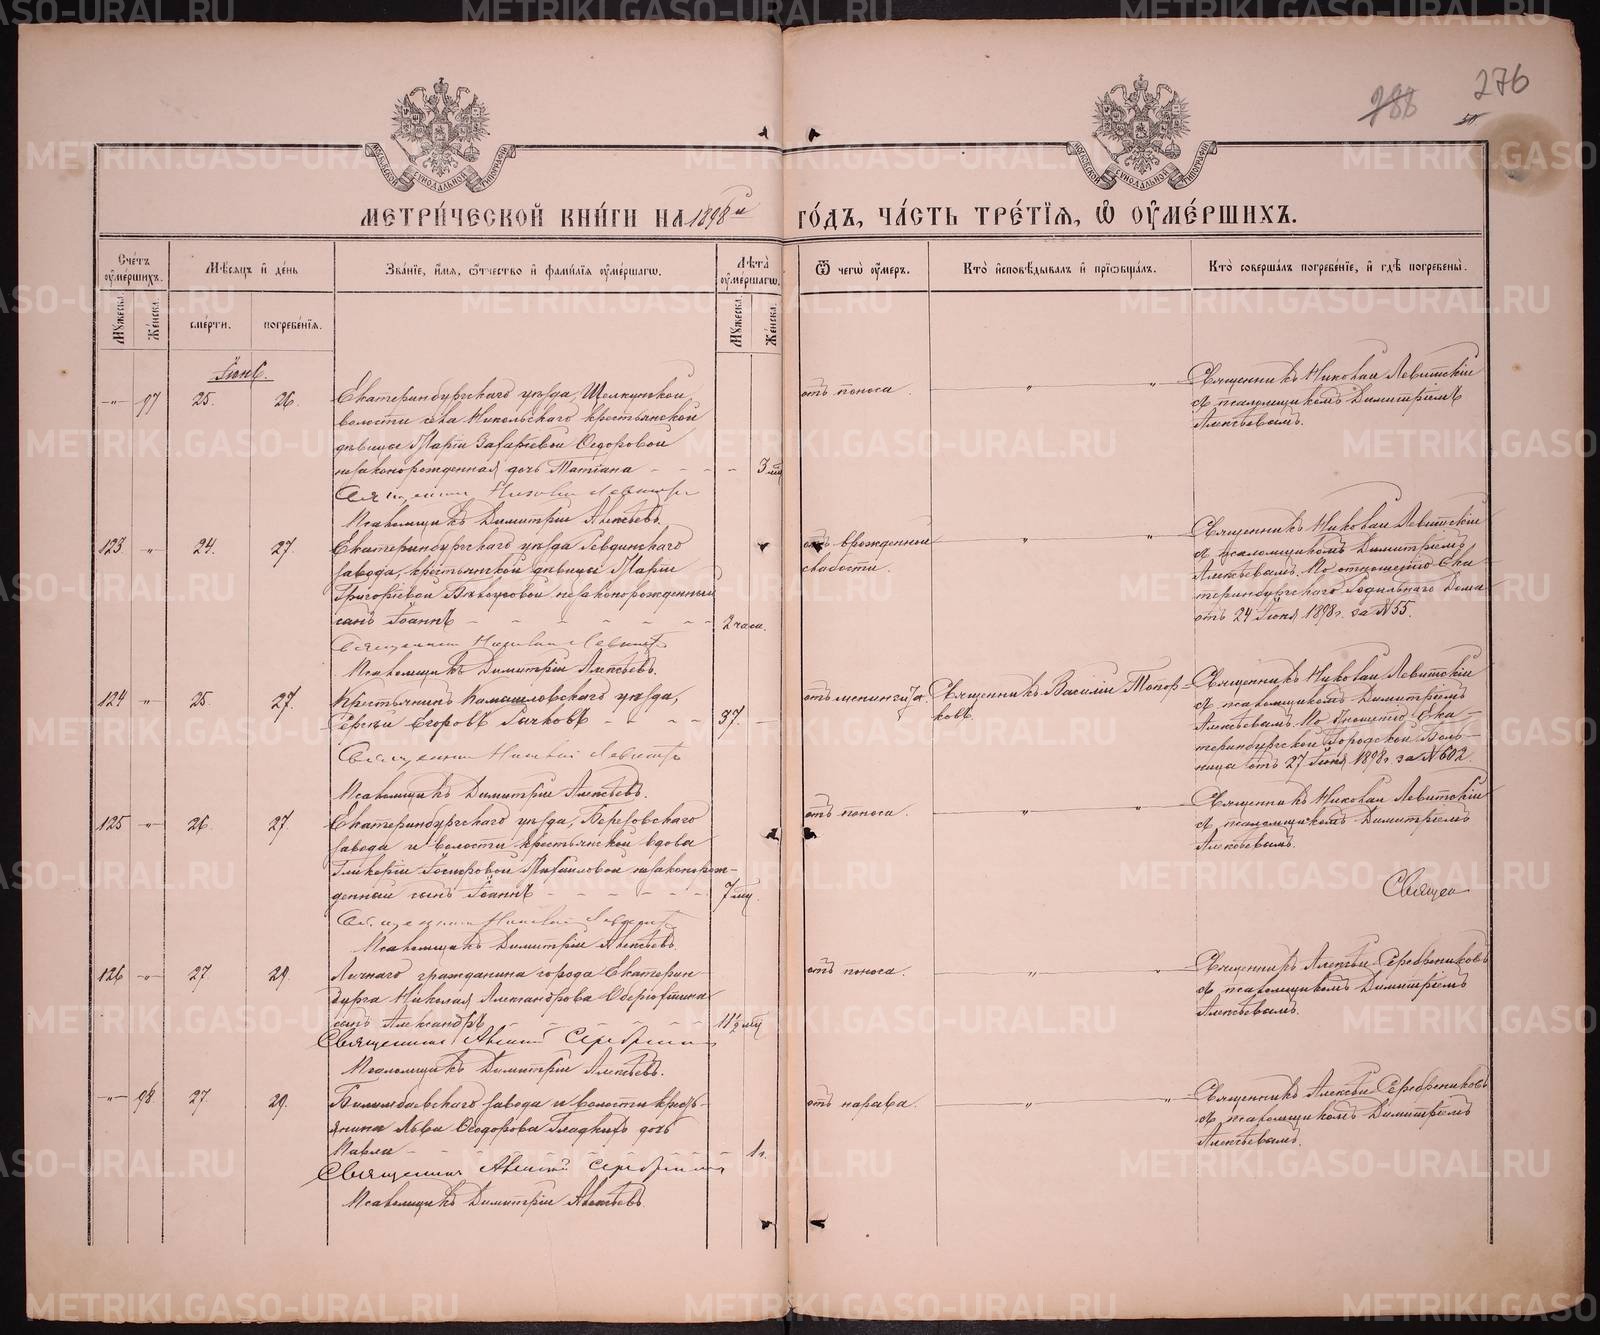 276
288
МОСКОВСКОЙ СѴНОДАЛЬНОЙ ТИПОГРАФІИ
МОСКОВСКОЙ СѴНОДАЛЬНОЙ ТИПОГРАФІИ
МЕТРИ́ЧЕСКОЙ КНИ́ГИ НА 1898й ГО́ДЪ, ЧА́СТЬ ТРЕ́ТІЯ, Ѡ ОУМЕ́РШИХЪ.
Сче́тъ оуме́ршихъ.
Мѣ́сяцъ и де́нь
Зва́ніе, и́мя, ѻ́тчество и фами́лія оуме́ршагѡ.
Лѣта̀ оуме́ршагѡ.
Ѿ чегѡ̀ оу́меръ.
Кто̀ исповѣ́дывалъ и пріѡбща́лъ.
Кто̀ соверша́лъ погребе́ніе, и гдѣ̀ погребены̀.
Мꙋ́жеска.
Же́нска.
сме́рти.
погребе́нія.
Мꙋ́жеска.
Же́нска.
Іюнь.
-„- 97 25. 26.
Екатеринбургскаго уѣзда, Шелкунской
волости села Никольскаго крестьянской
дѣвицы Маріи Захаріевой Ѳедоровой
незаконорожденная дочь Татіана - - - - 3 мц
Священникъ Николай Левитскій
Псаломщикъ Димитрій Алексѣевъ.
отъ поноса
Священникъ Николай Левитскій
съ псаломщикомъ Димитріемъ
Алексѣевымъ.
123 „ 24. 27.
Екатеринбургскаго уѣзда Ревдинскаго
завода, крестьянской дѣвицы Маріи
Григорьевой незаконорожденный
сынъ Іоаннъ - - - - - - 2 часа.
Священникъ Николай Левитскій
Псаломщикъ Димитрій Алексѣевъ.
отъ врожденный
слабости.
Священникъ Николай Левитскій
съ псаломщикомъ Димитріемъ
Алексѣевымъ. По отношенію Ека-
теринбургскаго Родильнаго Дома
отъ 24 Іюня 1898г. за № 55.
124 „ 25. 27.
Крестьянинъ Камышловскаго уѣзда,
Сергѣй Егоровъ - - - - 37. -
Священникъ Николай Левитскій
Псаломщикъ Димитрій Алексѣевъ.
отъ менингита.
Священникъ Василій Топор-
ковъ.
Священникъ Николай Левитскій
съ псаломщикомъ Димитріемъ
Алексѣевымъ. По отношенію Ека-
теринбургской Городской Боль-
ницы отъ 27 Іюня 1898г. за № 602.
125 „ 26. 27.
Екатеринбургскаго уѣзда, Березовскаго
завода и волости крестьянской вдовы
Гликеріи Михайловой незаконорож-
денный сынъ Іоаннъ - - - - - - 7 мц.
Священникъ Николай Левитскій
Псаломщикъ Димитрій Алексѣевъ.
отъ поноса.
Священникъ Николай Левитскій
съ псаломщикомъ Димитріемъ
Алексѣевымъ.
Священ
126 „ 27 29.
Личнаго гражданина города Екатерин
бурга Николая Александрова
сынъ Александръ - - - - - 11½ мц
Священникъ Алексій Серебренниковъ
Псаломщикъ Димитрій Алексѣевъ.
отъ поноса.
Священникъ Алексѣй Серебренниковъ
съ псаломщикомъ Димитріемъ
Алексѣевымъ.
-„- 98 27. 29.
Билимбаевскаго завода и волости кресть-
янина Льва Ѳеодорова Гладкихъ дочь
Павла - - - - - 1 г.
Священникъ Алексій Серебренниковъ
Псаломщикъ Димитрій Алексѣевъ.
отъ нарыва.
Священникъ Алексѣй Серебренниковъ
съ псаломщикомъ Димитріемъ
Алексѣевымъ.
METRIKI.GASO-URAL.RU